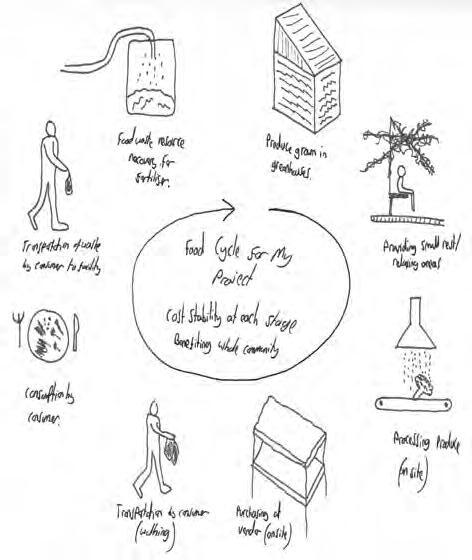 Food Cycle for My
Project
Cost Stability at each stage
Benefiting whole community
Produce grown in
greenhouses.
Providing small rest/
relaxing areas
Processing Produce
(on site)
Purchasing at
vendor (onsite)
Transportation by consumer
(walking)
Consumption by
consumer.
Transportation of waste
by consumer to facility
Food waste resource
recovery for
fertiliser.